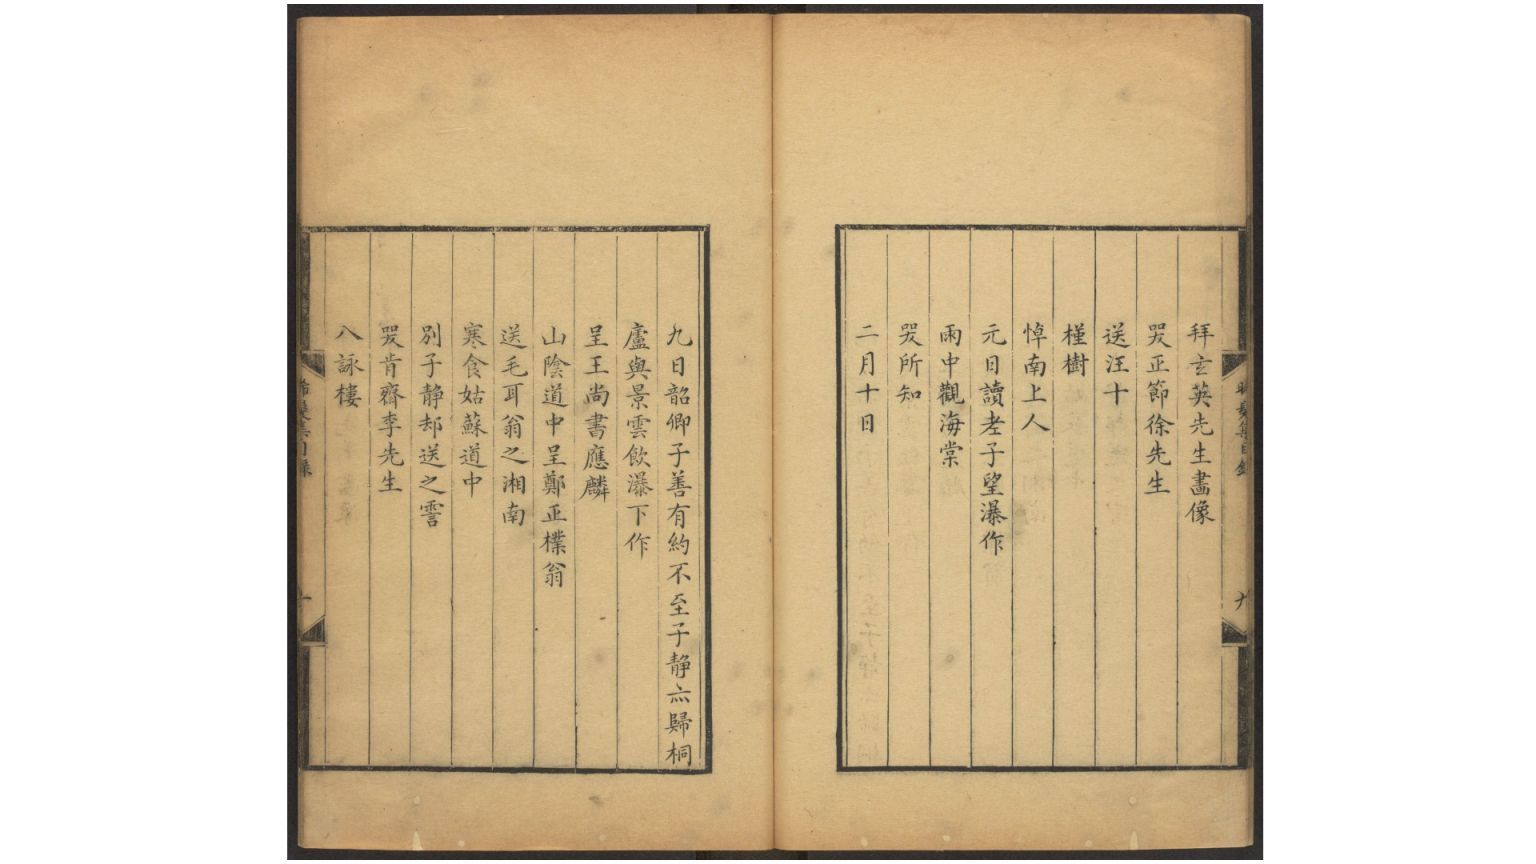 拜玄英先生畵像
哭正節徐先生
送汪十
槿樹
悼南上人
元日讀孝子望瀑作
雨中觀海棠
哭所知
二月十日
九日韶卿子善有約不至子静亦歸桐
廬與景雲飲瀑下作
呈王尚書應麟
山陰道中呈鄭正樸翁
送毛耳翁之湘南
寒食姑蘇道中
別子静却送之霅
哭肯齋李先生
八詠樓